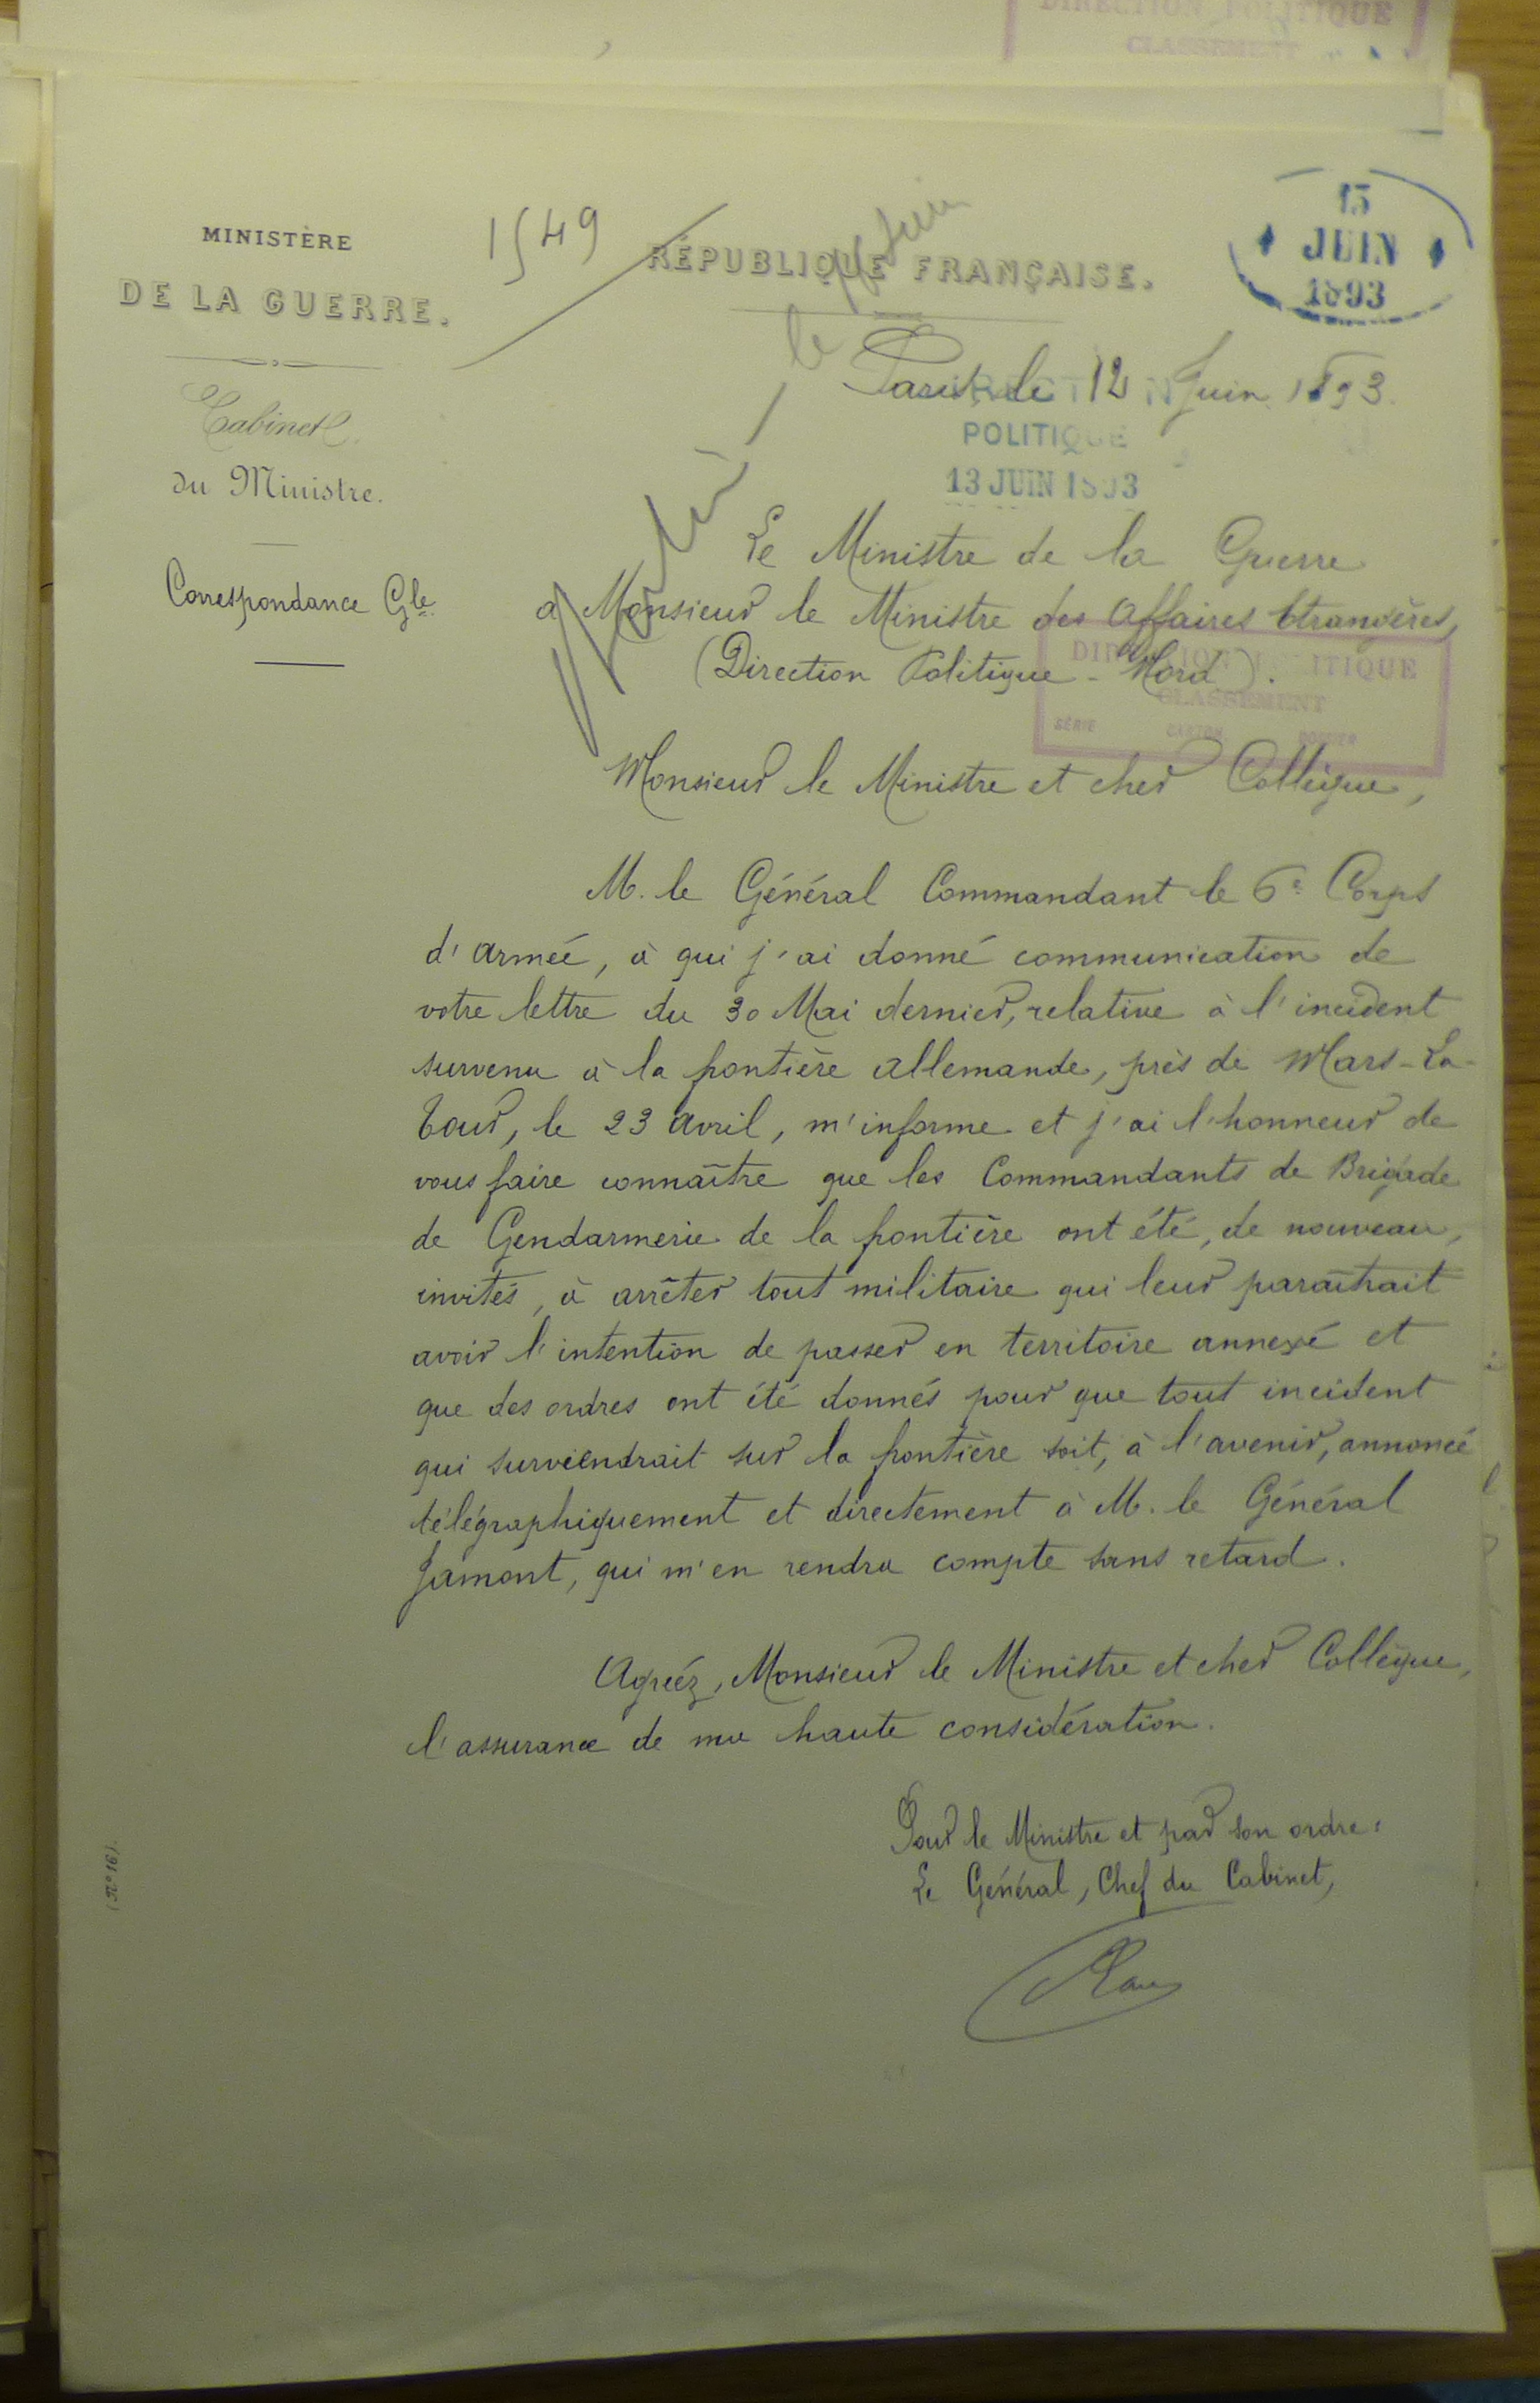 DIRECTION POLITIQUE
CLASSEMENT
MINISTÈRE
DE LA GUERRE.
Cabinet
du Ministre.
Correspondance Gle
1549
RÉPUBLIQUE FRANÇAISE.
13
JUIN
1893
Paris, le 12 Juin 1893.
POLITIQUE
13 JUIN 1893
Le Ministre de la Guerre
a Monsieur le Ministre des Affaires Etrangères,
(Direction Politique - Nord).
DIRECTION POLITIQUE
CLASSEMENT
SÉRIE CARTON DOSSIER
Monsieur le Ministre et cher Collègue,
M. le Général Commandant le 6e Corps
d'armée, à qui j'ai donné communication de
votre lettre du 30 Mai dernier, relative à l'incident
survenu à la frontière allemande, près de Mars-La-
Tour, le 23 avril, m'informe et j'ai l'honneur de
vous faire connaître que les Commandants de Brigade
de Gendarmerie de la frontière ont été, de nouveau,
invités, à arrêter tout militaire qui leur paraîtrait
avoir l'intention de passer en territoire annexé et
que des ordres ont été donnés pour que tout incident
qui surviendrait sur la frontière soit, à l'avenir, annoncé
télégraphiquement et directement à M. le Général
Jamont, qui m'en rendra compte sans retard.
Agréez, Monsieur le Ministre et cher Collègue,
l'assurance de ma haute considération.
Pour le Ministre et par son ordre:
Le Général, Chef du Cabinet,
(No 16).